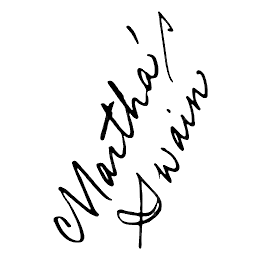 Martha's
Swain